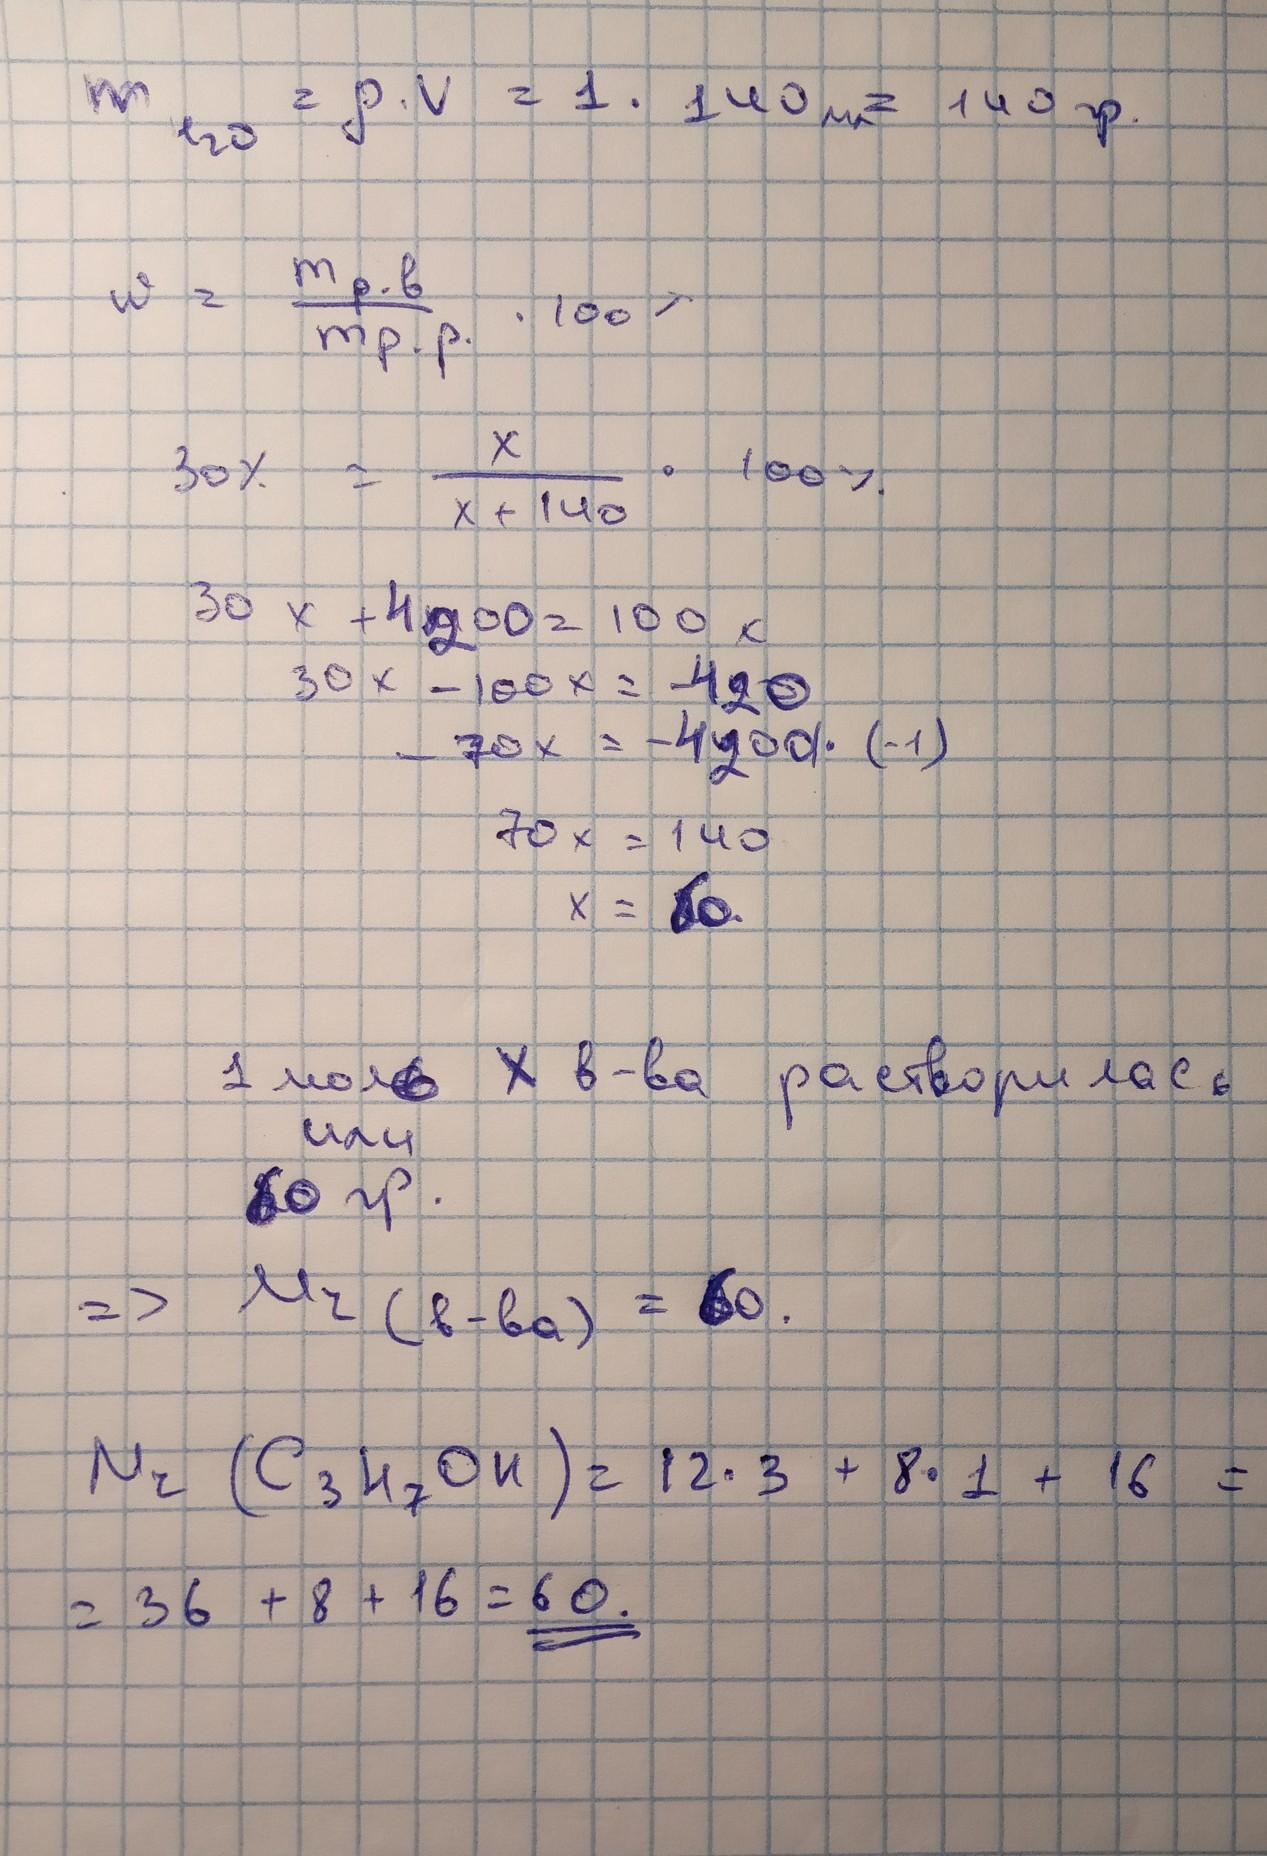 m H2O = ρ.V = 1. 140 мл = 140 гр.
w = m р.в / m р.р. · 100%
30% = x / x + 140 · 100%.
30 x + 4200 = 100 x
30x - 100x = -420
- 70x = -4200 · (-1)
70x = 140
x = 60.
1 моль X в-ва растворилась
или
60 гр.
=> Mr (в-ва) = 60.
Mr (C3H7OH) = 12·3 + 8·1 + 16 =
= 36 + 8 + 16 = 60.